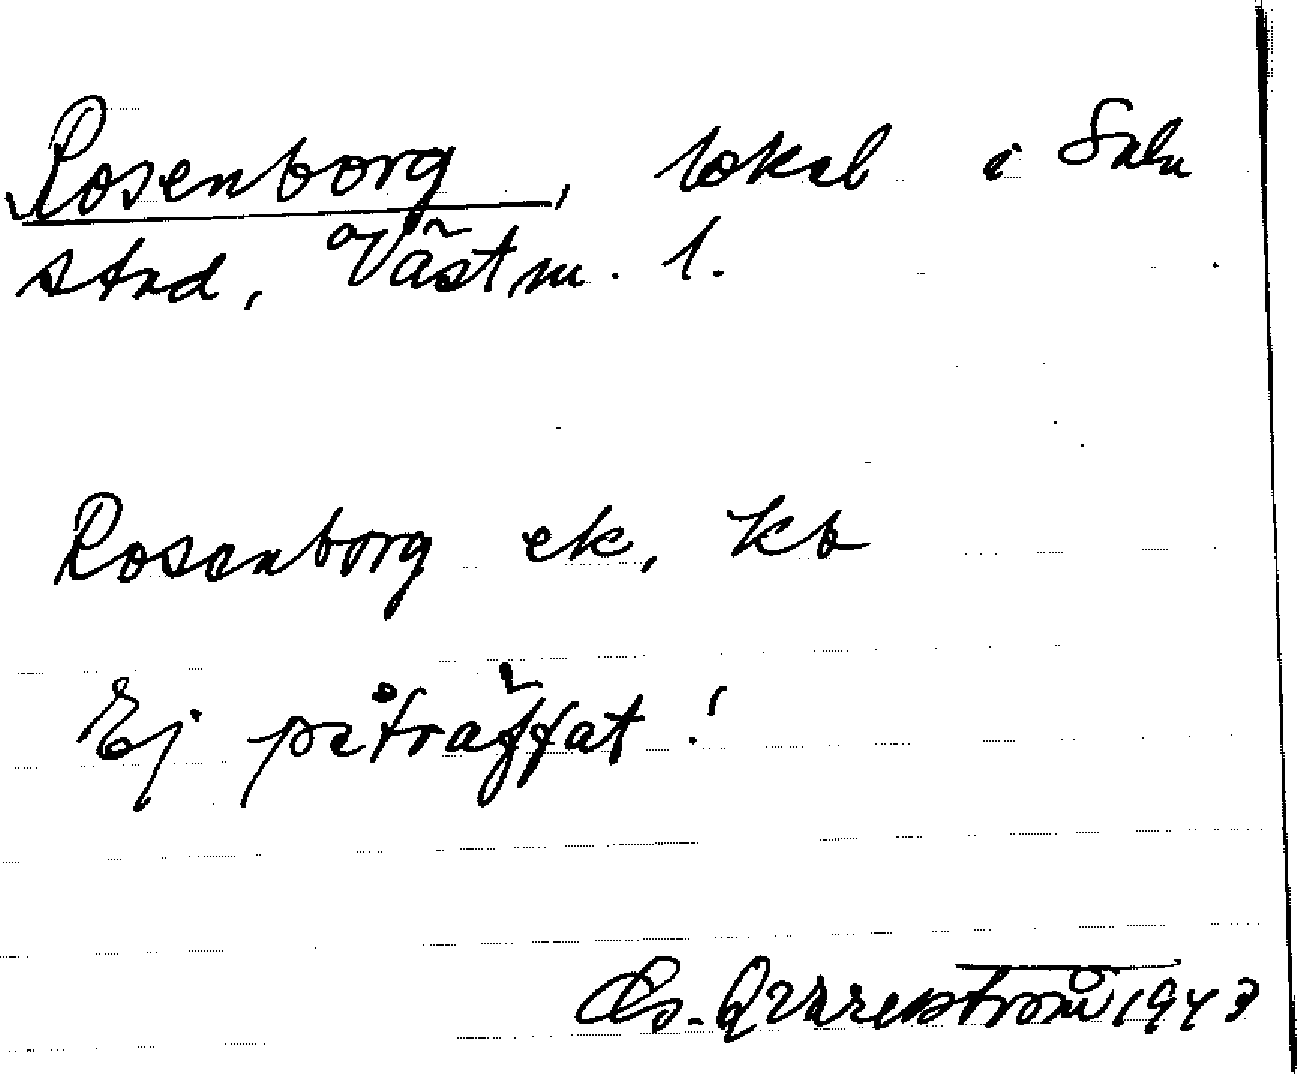 Rosenborg, lokal i Sala
stad, Västm. l.
Rosenborg ek, kb
Ej påträffat!
1943